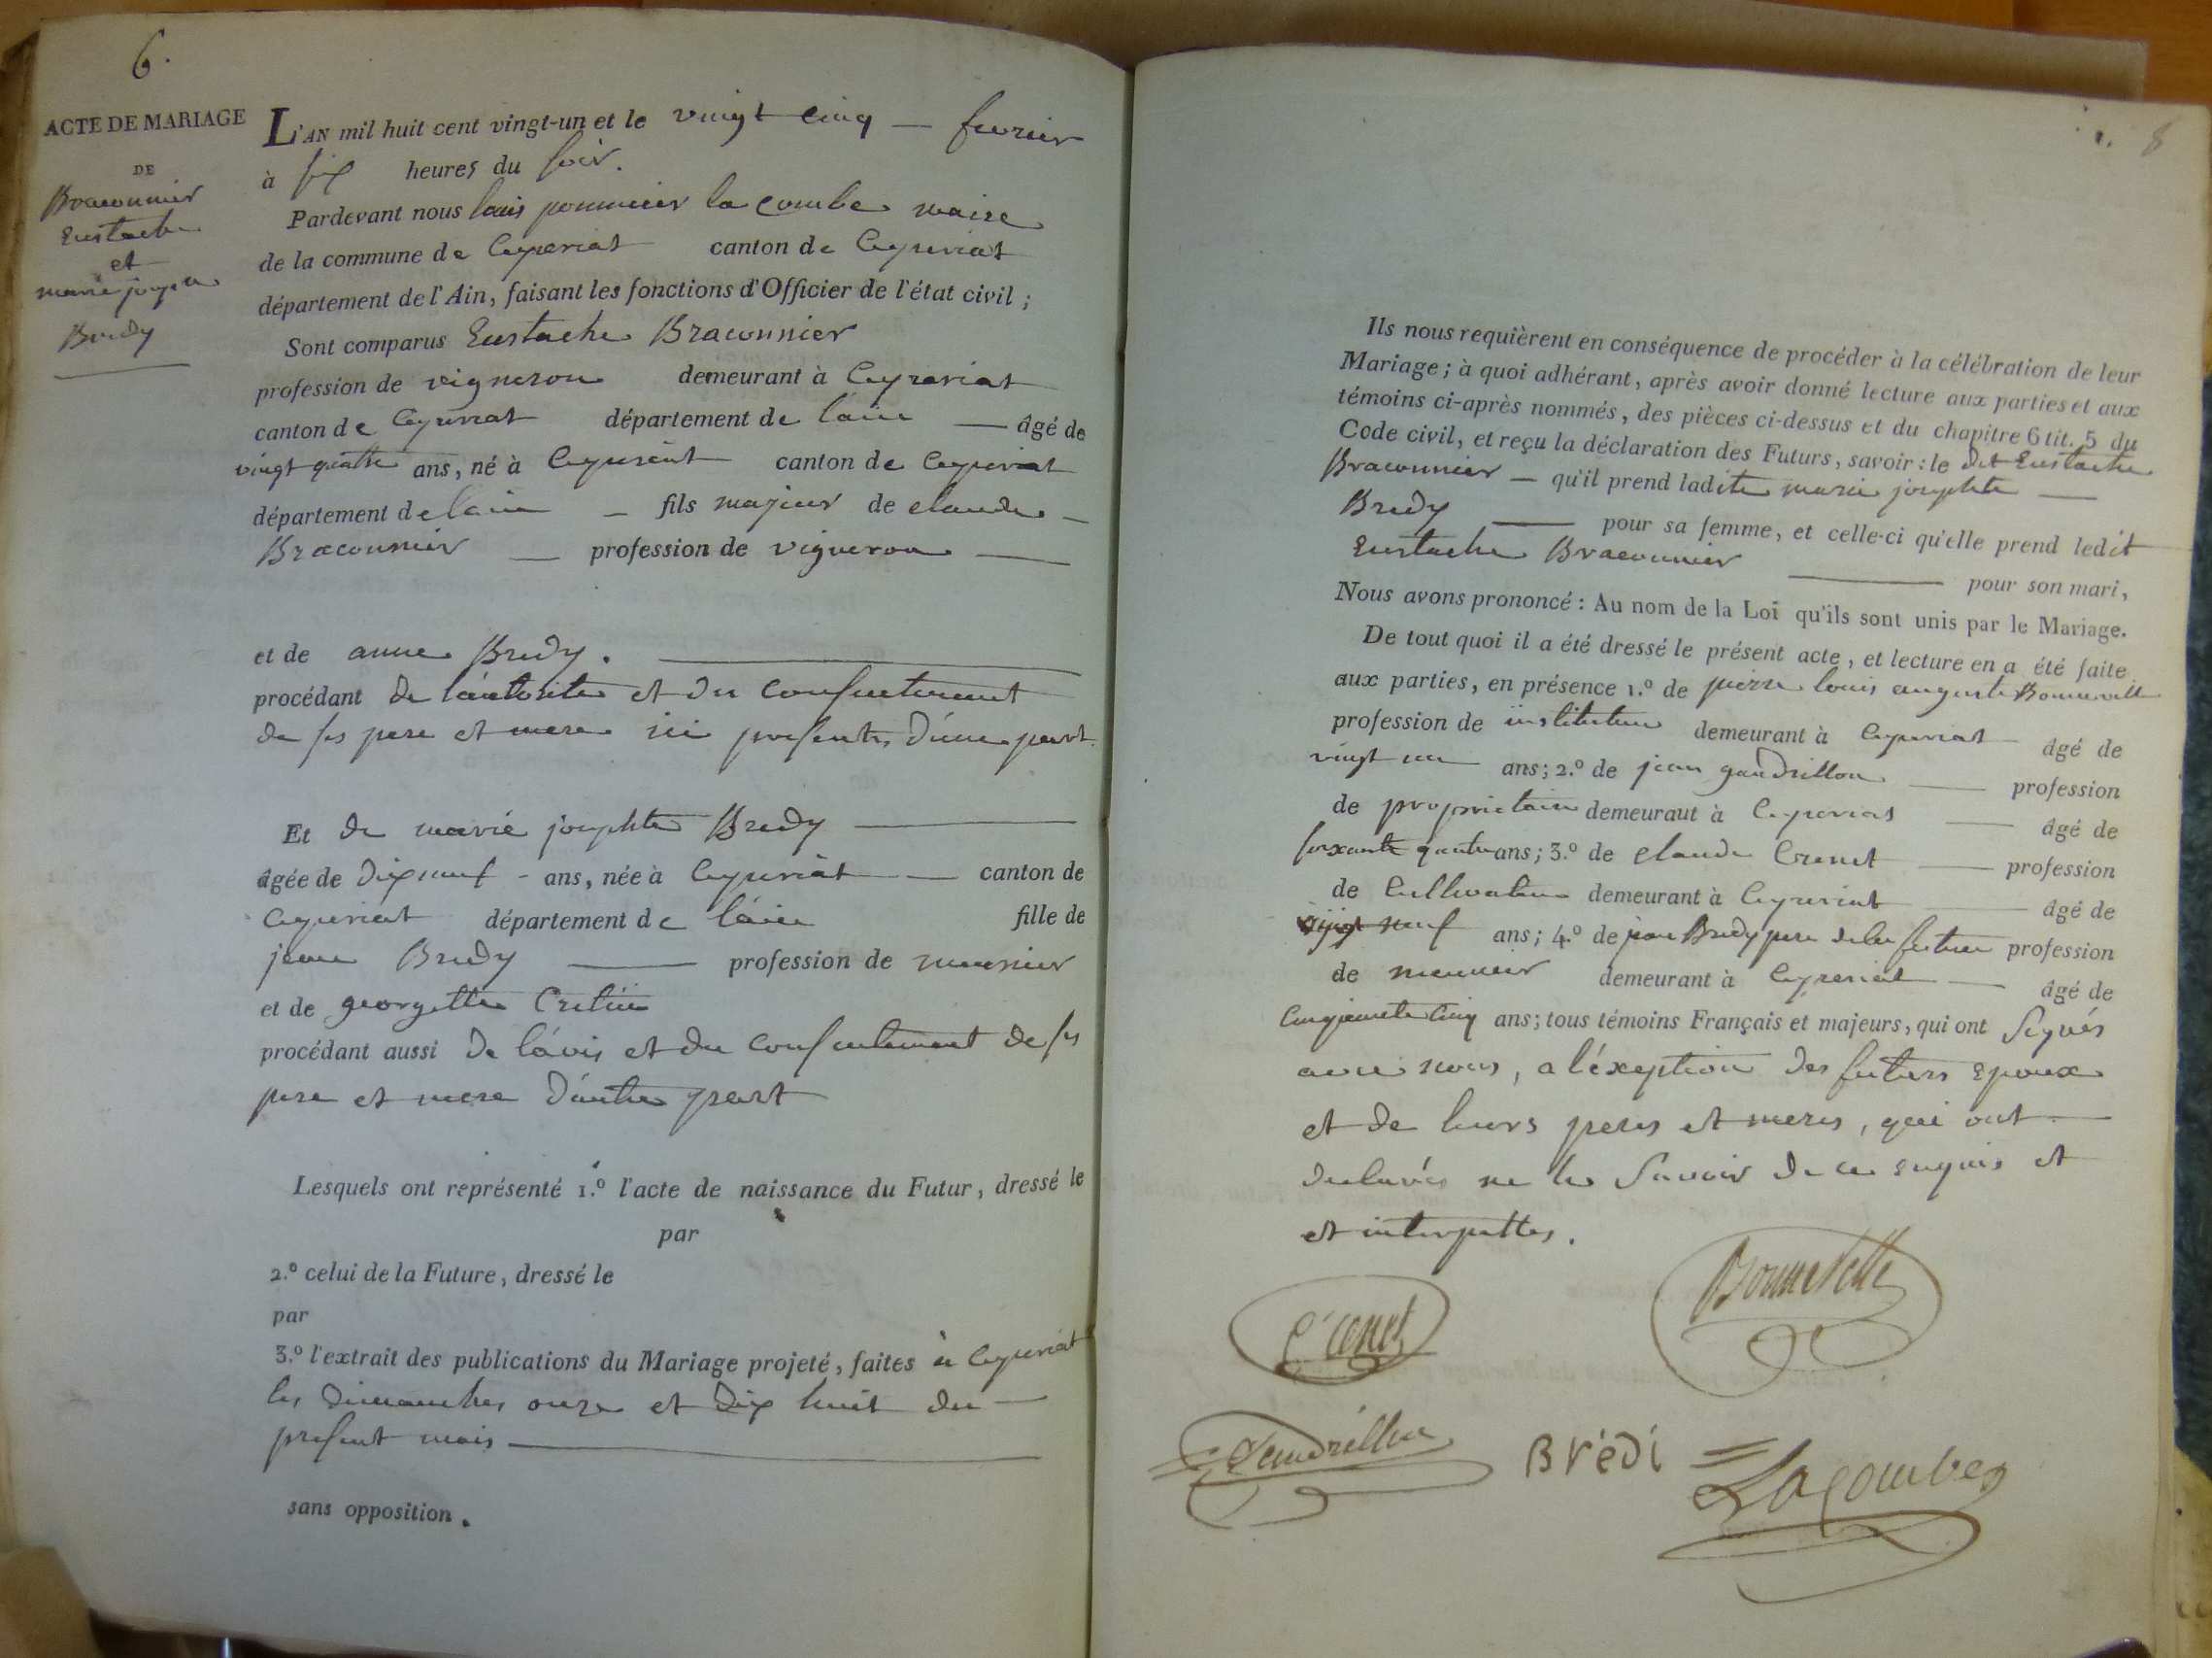 6.
ACTE DE MARIAGE
DE
Braconnier
Eustache
et
marie josephte
Bredy
L'AN mil huit cent vingt-un et le vingt cinq — fevrier
à six heures du soir.
Pardevant nous louis pommier la combe maire
de la commune de Ceyzeriat canton de Ceyzeriat
département de l'Ain, faisant les fonctions d'Officier de l'état civil ;
Sont comparus Eustache Braconnier
profession de vigneron demeurant à Ceyzeriat
canton de Ceyzeriat département de l'ain — âgé de
vingt quatre ans, né à Ceyzeriat canton de Ceyzeriat
département de l'ain — fils majeur de claude —
Braconnier — profession de vigneron —
et de anne Bredy. —
procédant de l'autorite et du consentement
de ses pere et mere ici presents, d'une part.
Et de marie josephte Bredy —
âgée de dix neuf - ans, née à Ceyzeriat — canton de
Ceyzeriat département de l'ain fille de
jean Bredy — profession de meunier
et de georgette Cretin
procédant aussi de l'avis et du consentement de ses
pere et mere d'autre part
Lesquels ont représenté 1.º l'acte de naissance du Futur, dressé le
par
2.º celui de la Future, dressé le
par
3.º l'extrait des publications du Mariage projeté, faites à Ceyzeriat
les dimanches onze et dix huit du —
present mois —
sans opposition.
8
Ils nous requièrent en conséquence de procéder à la célébration de leur
Mariage ; à quoi adhérant, après avoir donné lecture aux parties et aux
témoins ci-après nommés, des pièces ci-dessus et du chapitre 6 tit. 5 du
Code civil, et reçu la déclaration des Futurs, savoir : le dit Eustache
Braconnier — qu'il prend ladite marie josephte —
Bredy — pour sa femme, et celle-ci qu'elle prend ledit
Eustache Braconnier — pour son mari,
Nous avons prononcé : Au nom de la Loi qu'ils sont unis par le Mariage.
De tout quoi il a été dressé le présent acte, et lecture en a été faite
aux parties, en présence 1.º de pierre louis auguste Bonnevelle
profession de instituteur demeurant à Ceyzeriat âgé de
vingt un ans ; 2.º de jean gandrillon — profession
de proprietaire demeurant à Ceyzeriat — âgé de
soixante quatre ans ; 3.º de claude Crenet — profession
de Cultivateur demeurant à Ceyzeriat — âgé de
vingt neuf ans ; 4.º de jean Bredy pere de la future profession
de meunier demeurant à Ceyzeriat — âgé de
Cinquante Cinq ans ; tous témoins Français et majeurs, qui ont Signés
avec nous, a l'éxeption des futurs Epoux
et de leurs peres et meres, qui ont —
declarés ne le Savoir de ce enquis et
et interpellés.
Crenet
Bonnevelle
Gendrillon
Brédi
Lacombe